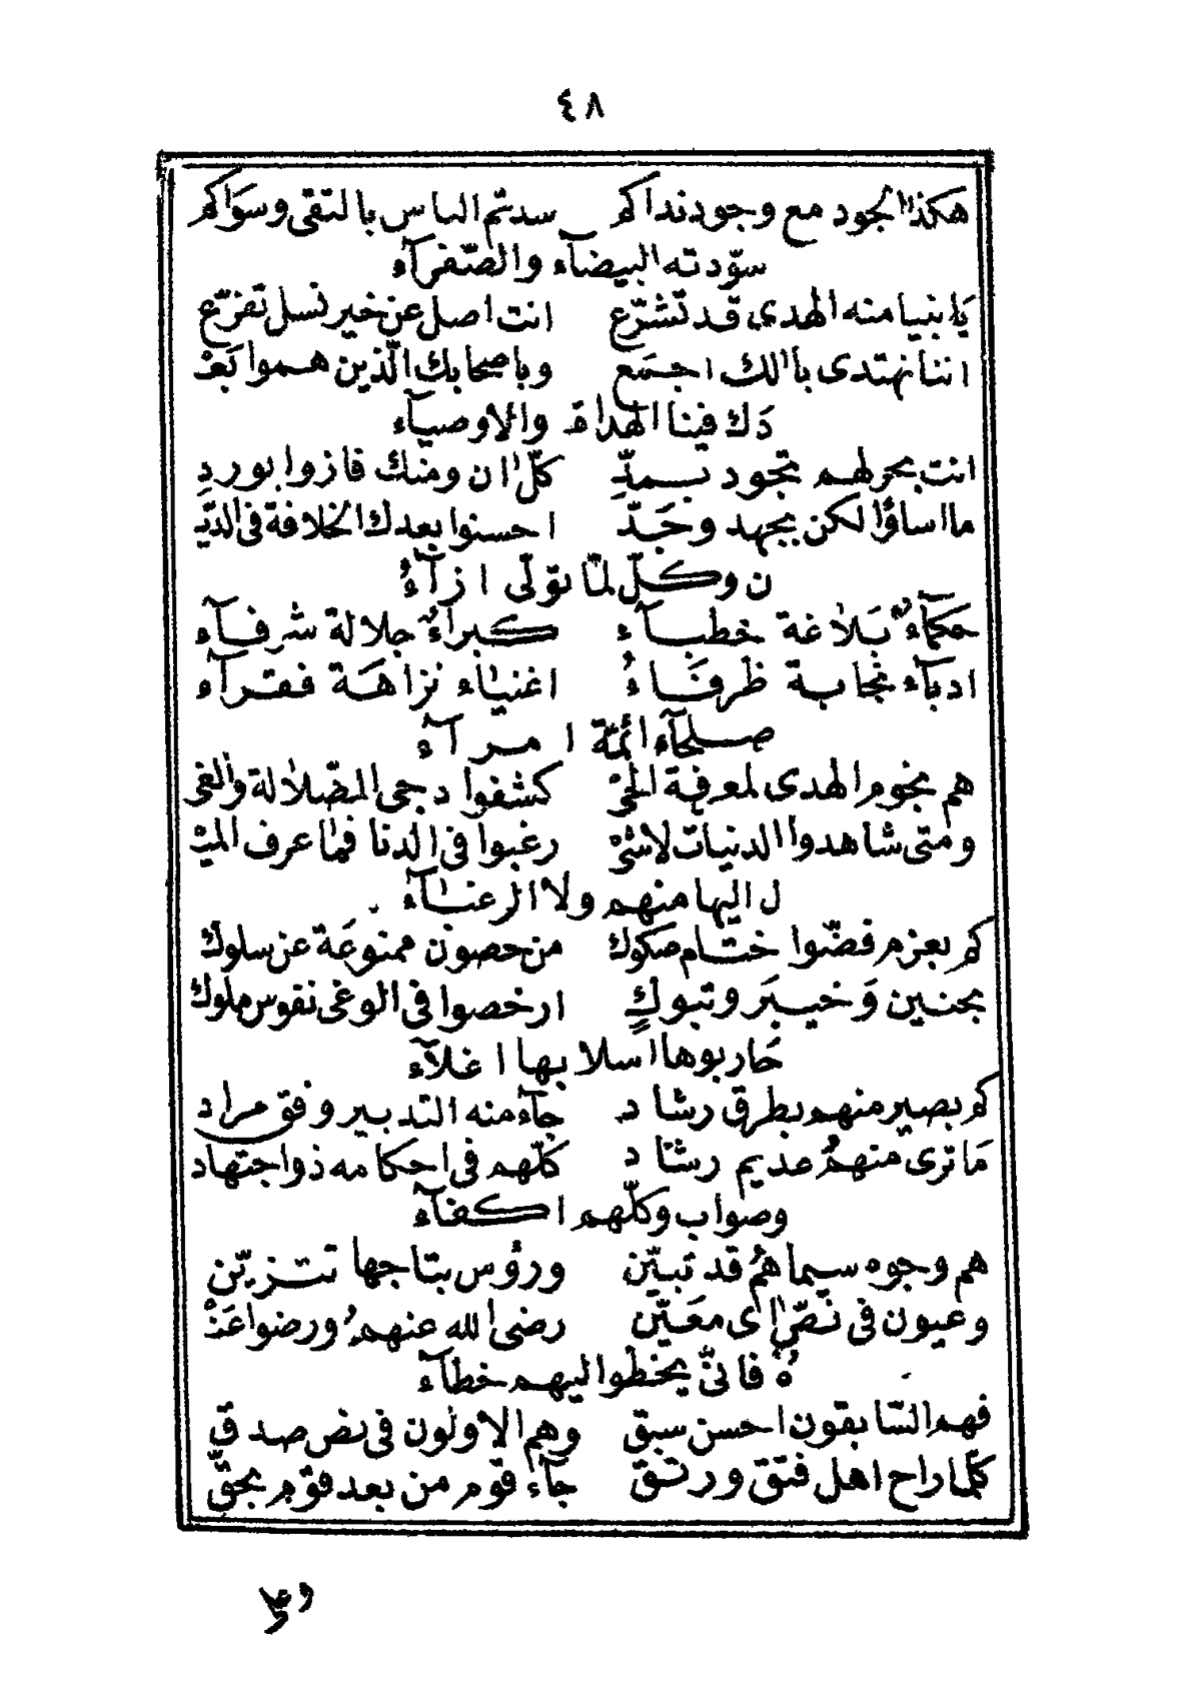 ٤٨
هكذا الجود مع وجود نداكم سدتم الناس بالتقى وسواكم
سوّدته البيضآء والصّفرآء
يا نبيا منه الهدى قد تشرّع انت اصل عن خير نسل تفرّع
اننا نهتدى بآلك اجمَع وباصحابك الّذين هموا بَعْ
دَك فينا الهداة والاوصيآء
انت بحر لهم تجود بمدِّ كلّ ان ومنك فازوا بوردِ
ما اساؤا لكن بجهد وجَدّ احسنوا بعدك الخلافة فى الدّيـ
ن وكلّ لمّا تولّى ازآءُ
حكمآءُ بَلاغة خطبآء كبرآءُ جلالة شرفآء
ادبآء نجابة ظرفَاءُ اغنيآء نزاهَة فقرآء
صلحآء ائمّة امرآء
هم نجوم الهدى لمعرفة الحىْ كشفوا دجى الضّلالة والغى
ومتى شاهدوا الدنيات لاشىْ رغبوا فى الدنا فما عرف الميْـ
ل اليها منهم ولا الرغبآء
كم بعزم فضّوا ختام صكوك من حصون ممنوعَة عن سلوك
بحنين وَخيبَر وتبوكٍ ارخصوا فى الوغى نفوس ملوك
حَاربوها اسلابها اغلآء
كم بصير منهم بطرق رشاد جآء منه التدبير وفق مراد
مَا ترى منهمُ عديم رشاد كلّهم فى احكامه ذو اجتهاد
وصواب وكلّهم اكفآء
هم وجوه سيماهُمُ قد تبيّن ورؤس بتاجها تتزيّن
وعيون فى نصّ اى معَيّن رضى الله عنهمُ ورضوا عَنْـ
هُ فانىّ يخطوا ليهم خطآء
فهم السّابقون احسن سبق وهم الاولون فى نص صدق
كلّما راح اهل فتق ورتق جآء قوم من بعد قوم بحقّ
وعلى